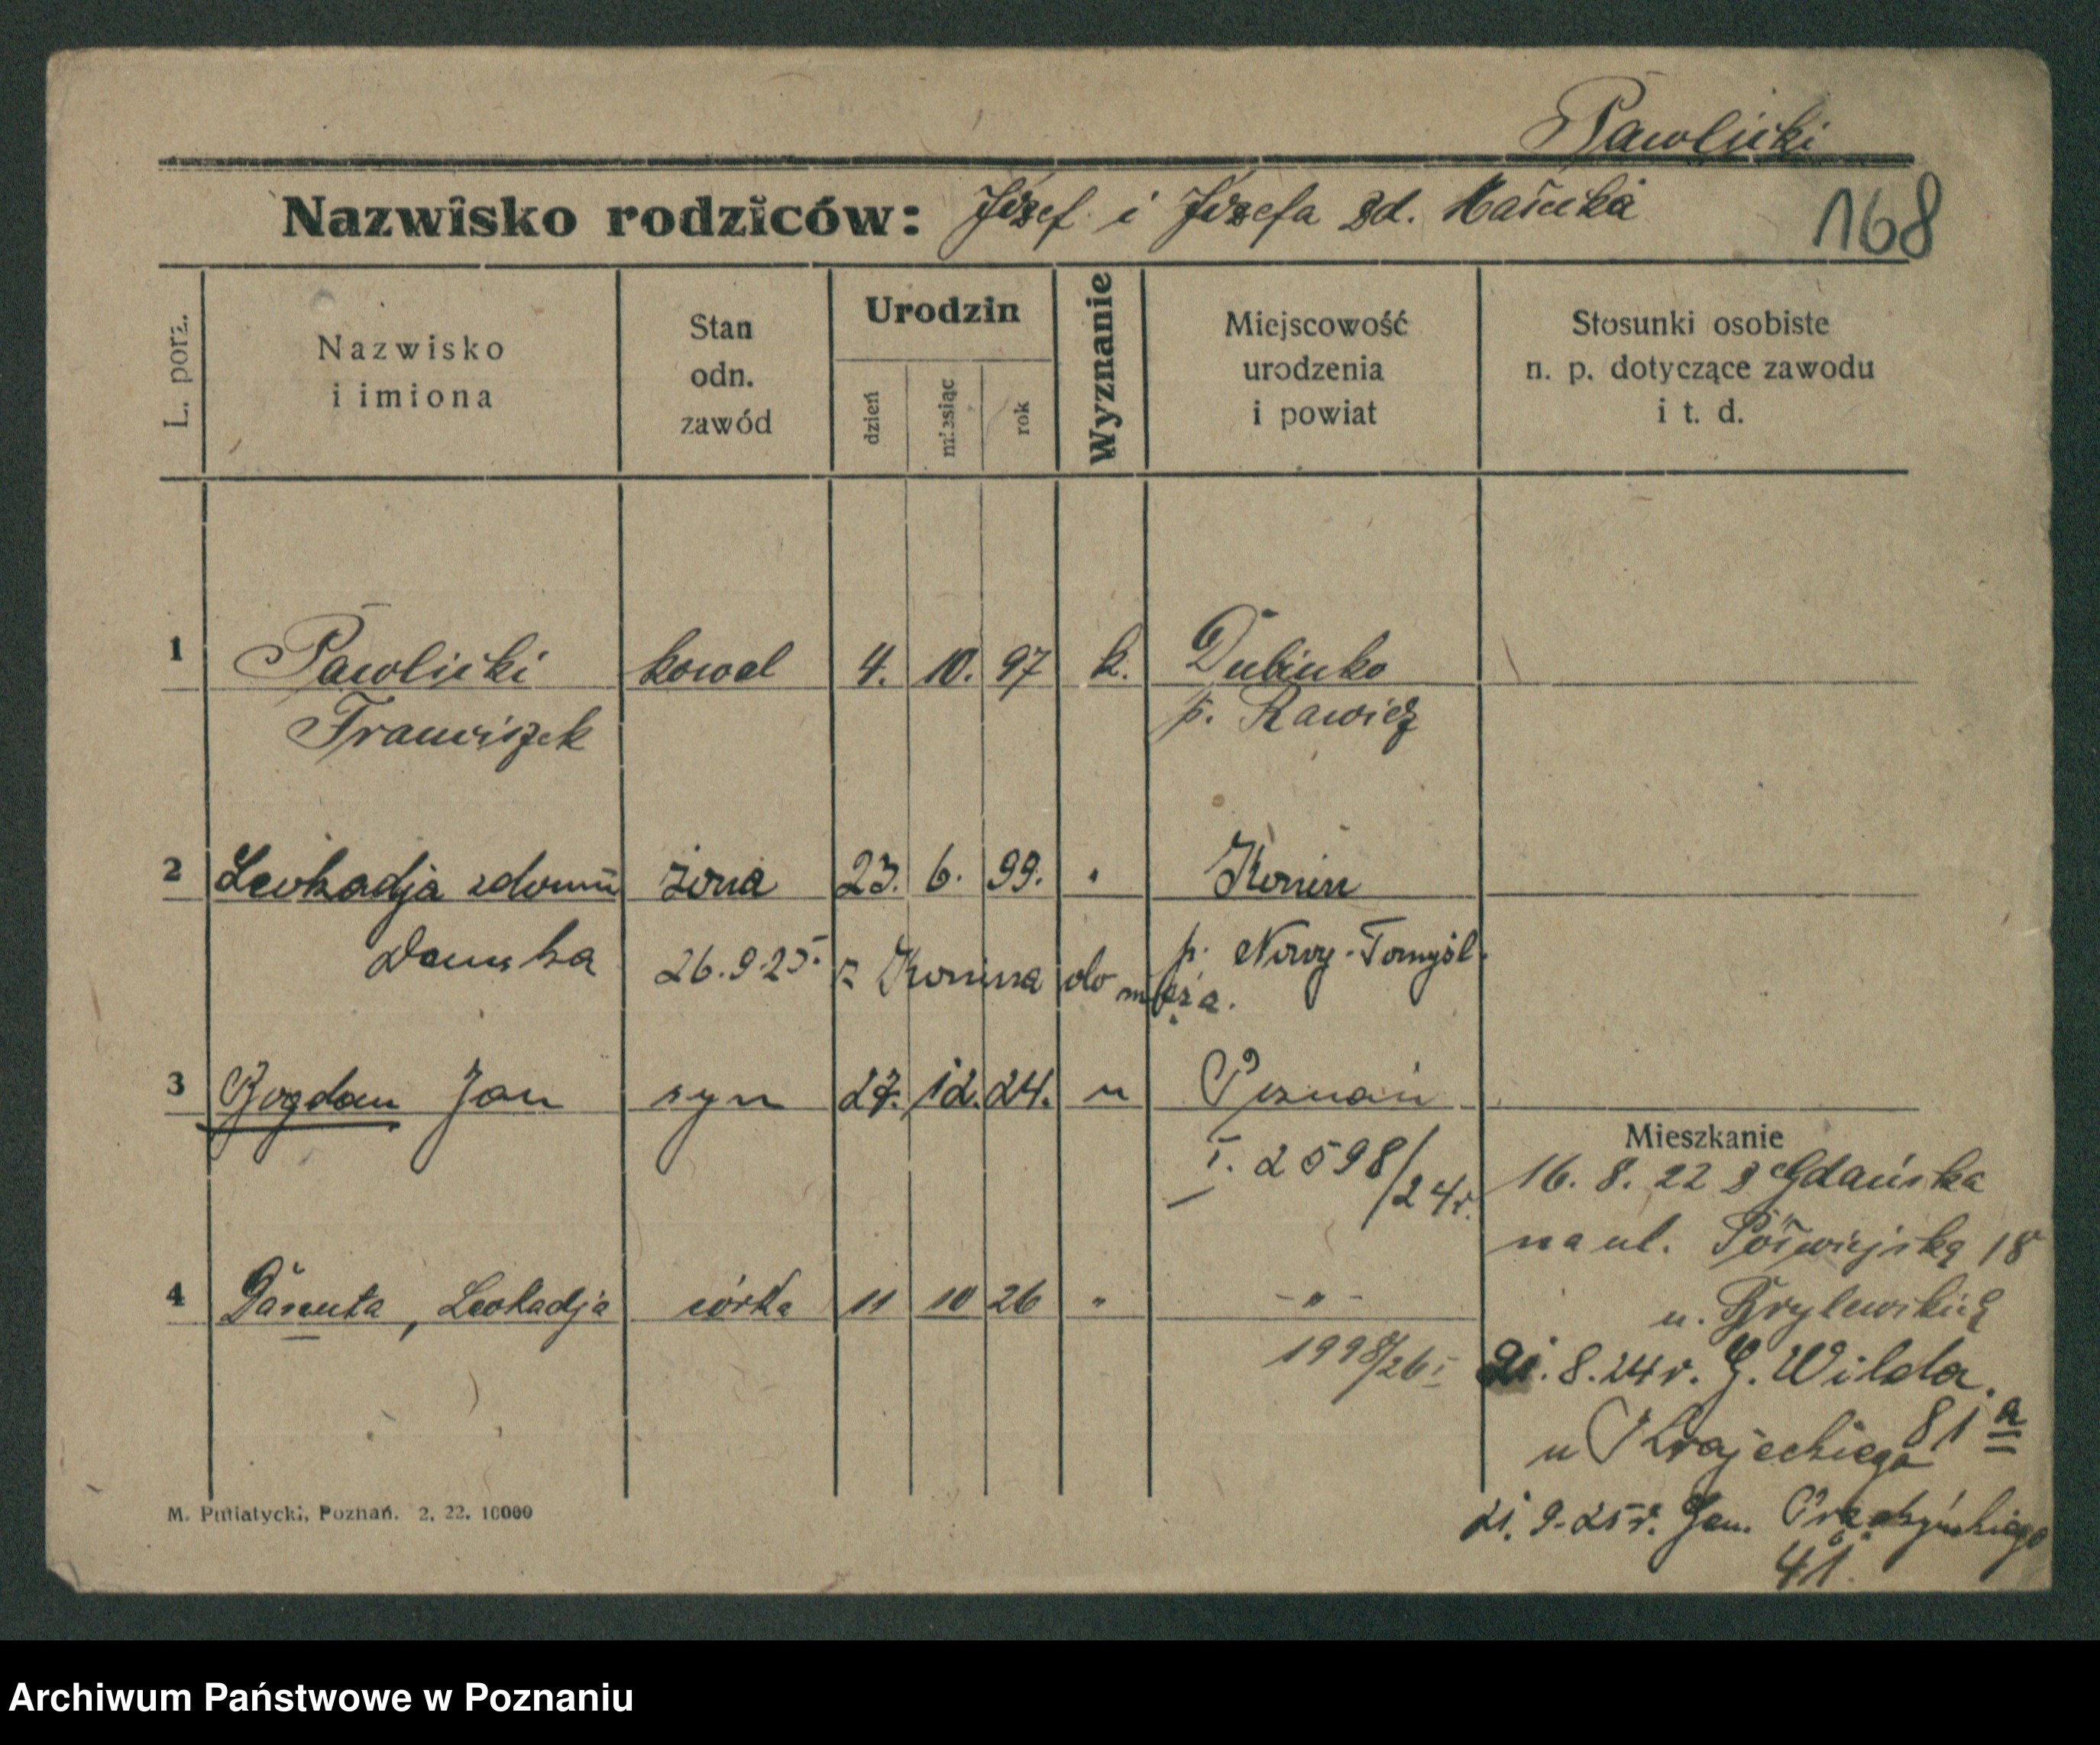 Pawlicki
Nazwisko rodziców: Józef i Józefa zd.
168
L. porz.
Nazwisko
i imiona
Stan
odn.
zawód
Urodzin
dzień
miesiąc
rok
Wyznanie
Miejscowość
urodzenia
i powiat
Stosunki osobiste
n. p. dotyczące zawodu
i t. d.
1 Pawlicki kowal 4. 10. 97 k. Dubinko
Franciszek p. Rawicz
2 Leokadja zdomu żona 23. 6. 99. " Konin
Danuska p. Nowy-Tomyśl.
26.9.25. z Konina do męża.
3 Bogdan Jan syn 27. 12. 24. " Poznań
I. 2598/24r.
4 Danuta, Leokadja córka 11 10 26 " - " -
1998/26 I
Mieszkanie
16. 8. 22 z Gdańska
na ul. Półwiejską 18
u. Brylewskich
21. 8. 24 r. G. Wilda.
81 a
u Krajeckiego
21. 9. 25 r. Gen. Prądzyńskiego
41.
M. Putiatycki, Poznań. 2. 22. 10000
Archiwum Państwowe w Poznaniu